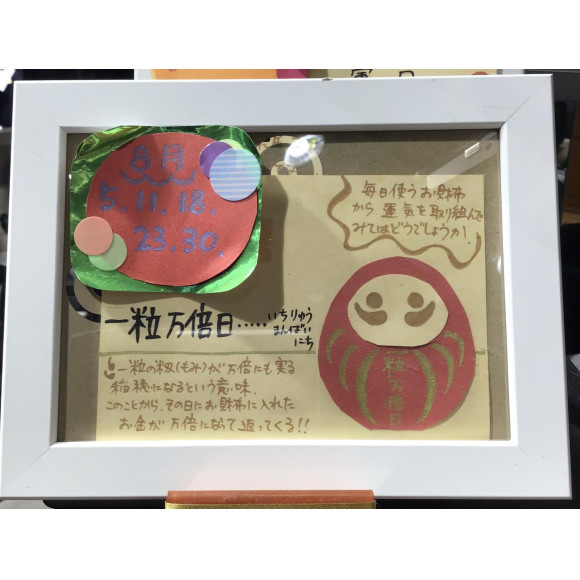 8月
5. 11. 18.
23. 30.
毎日使うお財布
から、運気を取り組んで
みてはどうでしょうか!
一粒万倍日.....いちりゅう
まんばい
にち
一粒の籾(もみ)が万倍にも実る
稲穂になるという意味。
このことから、その日にお財布に入れた
お金が万倍になって返ってくる!!
一粒万倍日